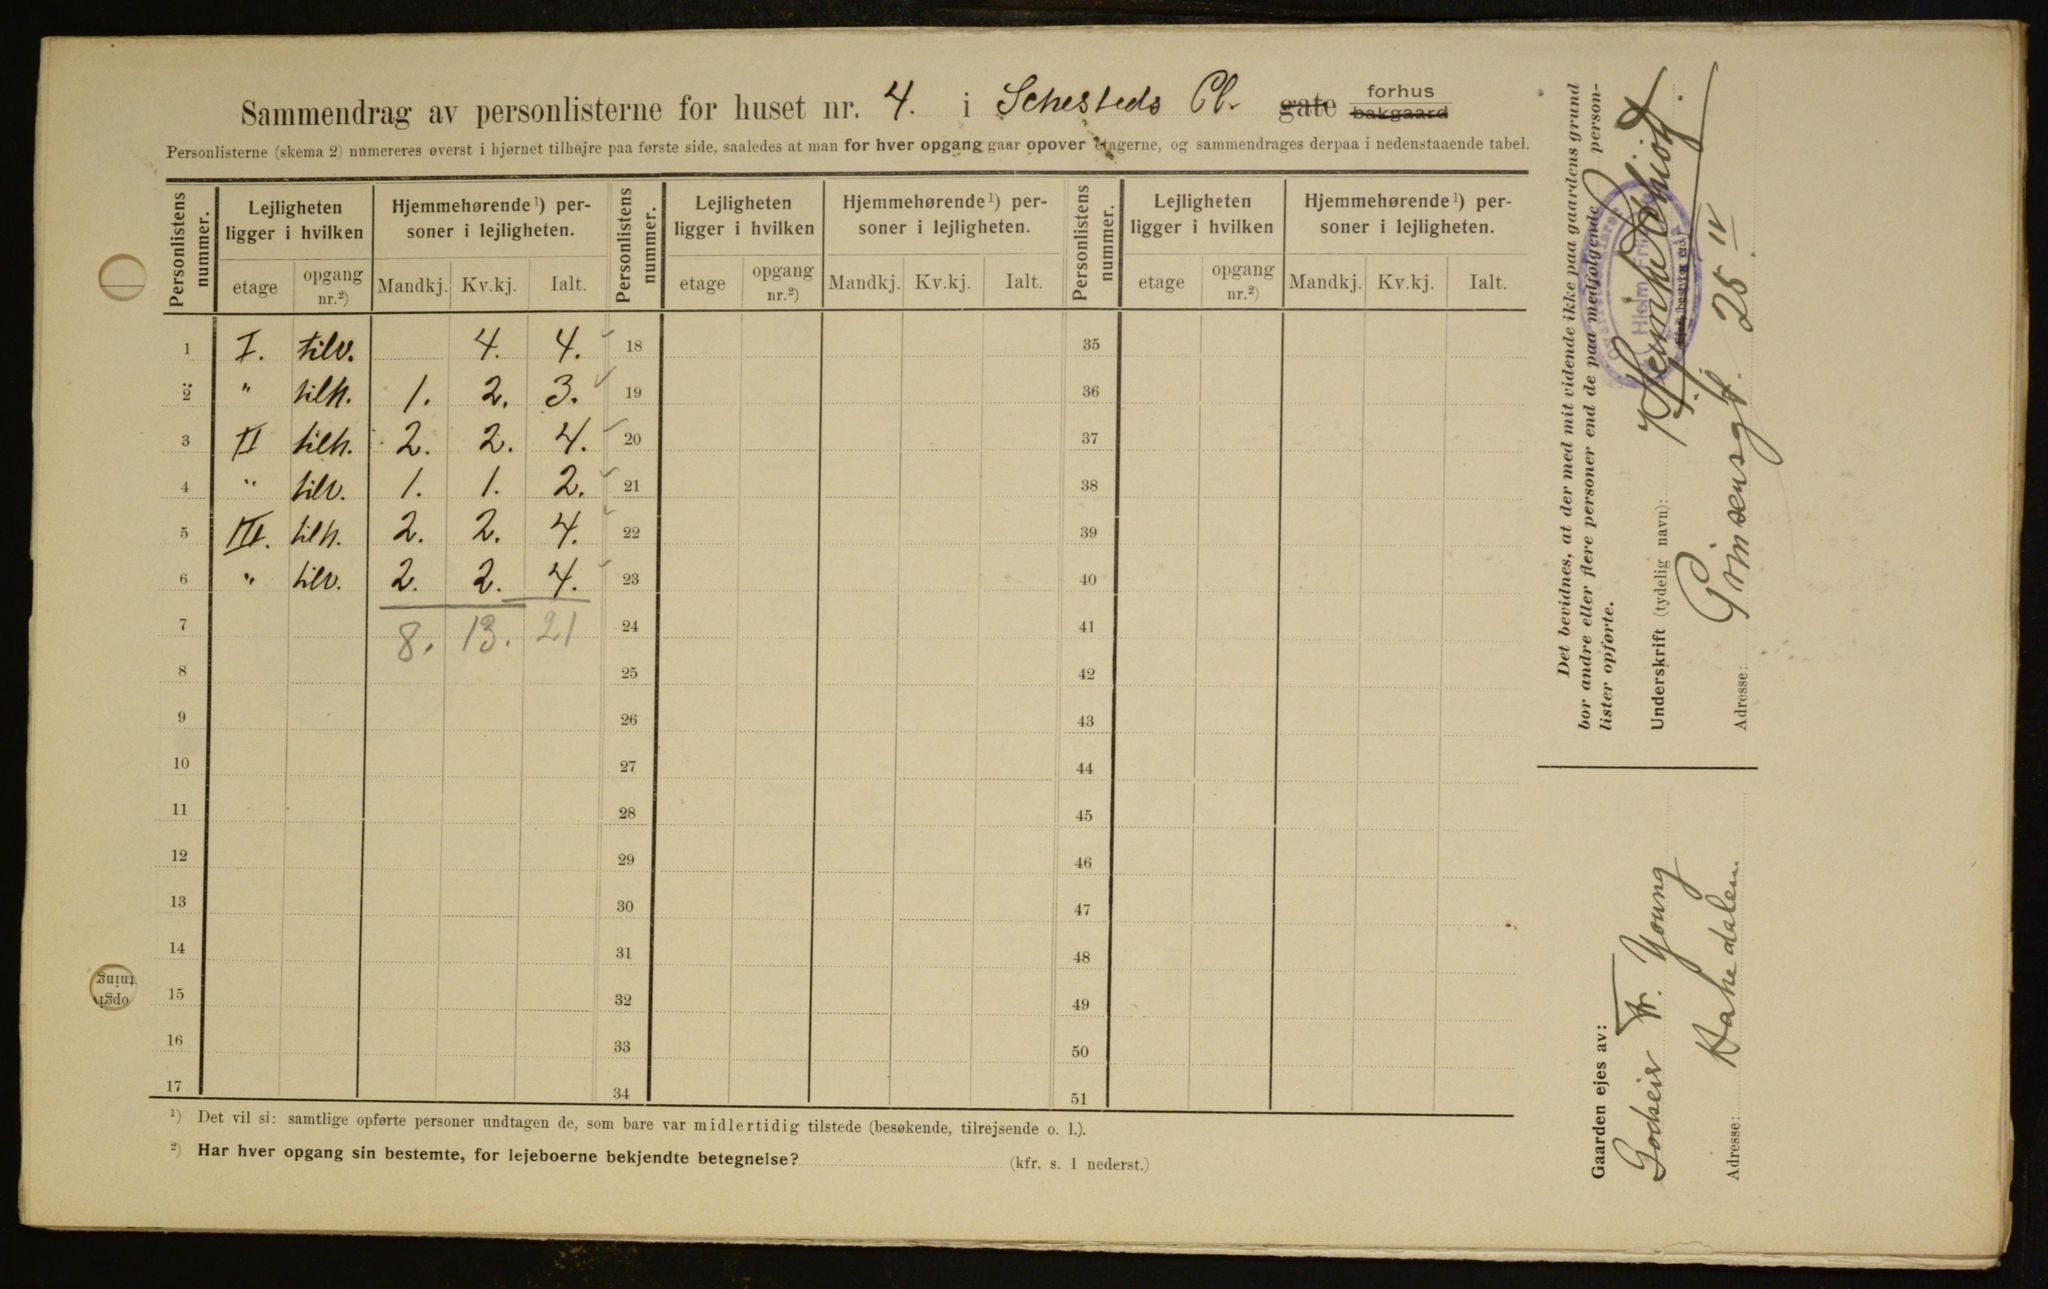 Sammendrag av personlisterne for huset nr. 4. i Sehesteds Pl. gate forhus bakgaard
Personlisterne (skema 2) numereres øverst i hjørnet tilhøjre paa første side, saaledes at man for hver opgang gaar opover etagerne, og sammendrages derpaa i nedenstaaende tabel.
Personlistens nummer. Lejligheten ligger i hvilken Hjemmehørende ¹) personer i lejligheten. Personlistens nummer. Lejligheten ligger i hvilken Hjemmehørende ¹) personer i lejligheten. Personlistens nummer. Lejligheten ligger i hvilken Hjemmehørende ¹) personer i lejligheten.
etage opgang nr.²) Mandkj. Kv.kj. Ialt. etage opgang nr.²) Mandkj. Kv.kj. Ialt. etage opgang nr.²) Mandkj. Kv.kj. Ialt.
1 I. tilv. 4. 4. 18 35
2 " tilh. 1. 2. 3. 19 36
3 II tilh. 2. 2. 4. 20 37
4 " tilv. 1. 1. 2. 21 38
5 III. tilh. 2. 2. 4. 22 39
6 " tilv. 2. 2. 4. 23 40
7 8. 13. 21 24 41
8 25 42
9 26 43
10 27 44
11 28 45
12 29 46
13 30 47
14 31 48
15 32 49
16 33 50
17 34 51
¹) Det vil si: samtlige opførte personer undtagen de, som bare var midlertidig tilstede (besøkende, tilrejsende o. l.).
²) Har hver opgang sin bestemte, for lejeboerne bekjendte betegnelse? (kfr. s. 1 nederst.)
Det bevidnes, at der med mit vidende ikke paa gaardens grund
bor andre eller flere personer end de paa medfølgende personlister opførte.
Underskrift (tydelig navn):
Adresse: Prinsensgt. 25 IV
Gaarden ejes av:
Godseier Fr. Young
Adresse: Hakedalen
opgt
tning